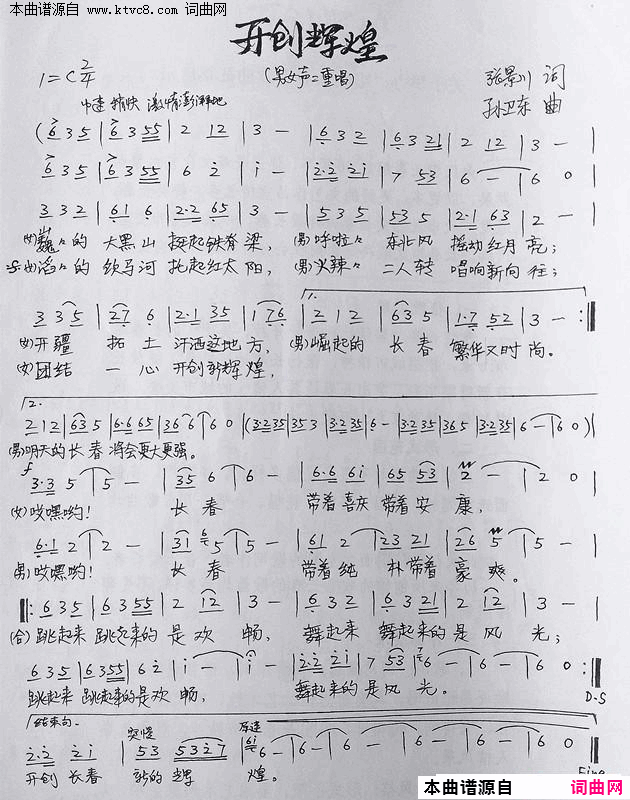 本曲谱源自 www.ktvc8.com 词曲网
开创辉煌
(男女声二重唱)
1=C 2/4
张景川 词
中速 稍快 激情澎湃地
孙卫东 曲
(6 3 5 | 6 3 5 5 | 2 1 2 | 3 — | 6 3 2 | 6 3 2 1 | 2 1 2 | 3 — |
6 3 5 | 6 3 5 5 | 6 2 | i — | 2·2 2 i | 7 5 3 | 6 — | 6 0 |
3 3 2 | 6 1 6 | 2·2 6 5 | 3 — | 5 3 5 | 5 3 5 | 2·1 6 3 | 2 — |
(女)巍々的 大黑山 挺起铁脊梁, (男)呼啦々 东北风 摇动红月亮;
(女)滔々的 饮马河 托起红太阳, (男)火辣々 二人转 唱响新向往;
3 3 5 | 2 7 6 | 2·1 3 5 | 1 7 6 | 1. 2 1 2 | 6 3 5 | 1·7 5 2 | 3 — :‖
(女)开疆 拓土 汗洒这地方, (男)崛起的 长春 繁华又时尚。
(女)团结 一心 开创新辉煌,
2.
2 1 2 | 6 3 5 | 6·6 6 5 | 3 6 6 | 6 0 | (3·2 3 5 | 3 5 3 | 3·2 3 5 | 6 — | 3·2 3 5 | 3 6 5 | 3·2 3 5 | 6 — | 6 0) |
(男)明天的长春 将会更大更强。
f 3·3 5 | 5 — | 3 5 6 | 6 — | 6·6 6 i | 6 5 5 3 | 2 — | 2 0 |
(女)哎嘿哟! 长春 带着喜庆 带着安康,
6·1 2 | 2 — | 3 1 5 | 5 — | 6 1 2 | 2 3 2 1 | 2 6 5 | 5 — |
(男)哎嘿哟! 长春 带着纯朴 带着豪爽。
‖: 6 3 5 | 6 3 5 5 | 2 1 2 | 3 — | 6 3 2 | 6 3 2 1 | 2 1 2 | 3 — |
(合)跳起来 跳起来的 是欢畅, 舞起来 舞起来的 是风光;
6 3 5 | 6 3 5 5 | 6 2 | i — | i — | 2·2 2 i | 7 5 3 | 6 — | 6 — | 6 0 :‖
跳起来 跳起来的是欢畅, 舞起来的是风光。
D·S
结束句. 突慢 原速
2·2 2 i | 5 3 5 3 2 7 | 6 — | 6 — | 6 — | 6 — | 6 0 ‖
开创 长春 新的 辉 煌。
Fine
本曲谱源自 词曲网
www.ktvc8.com